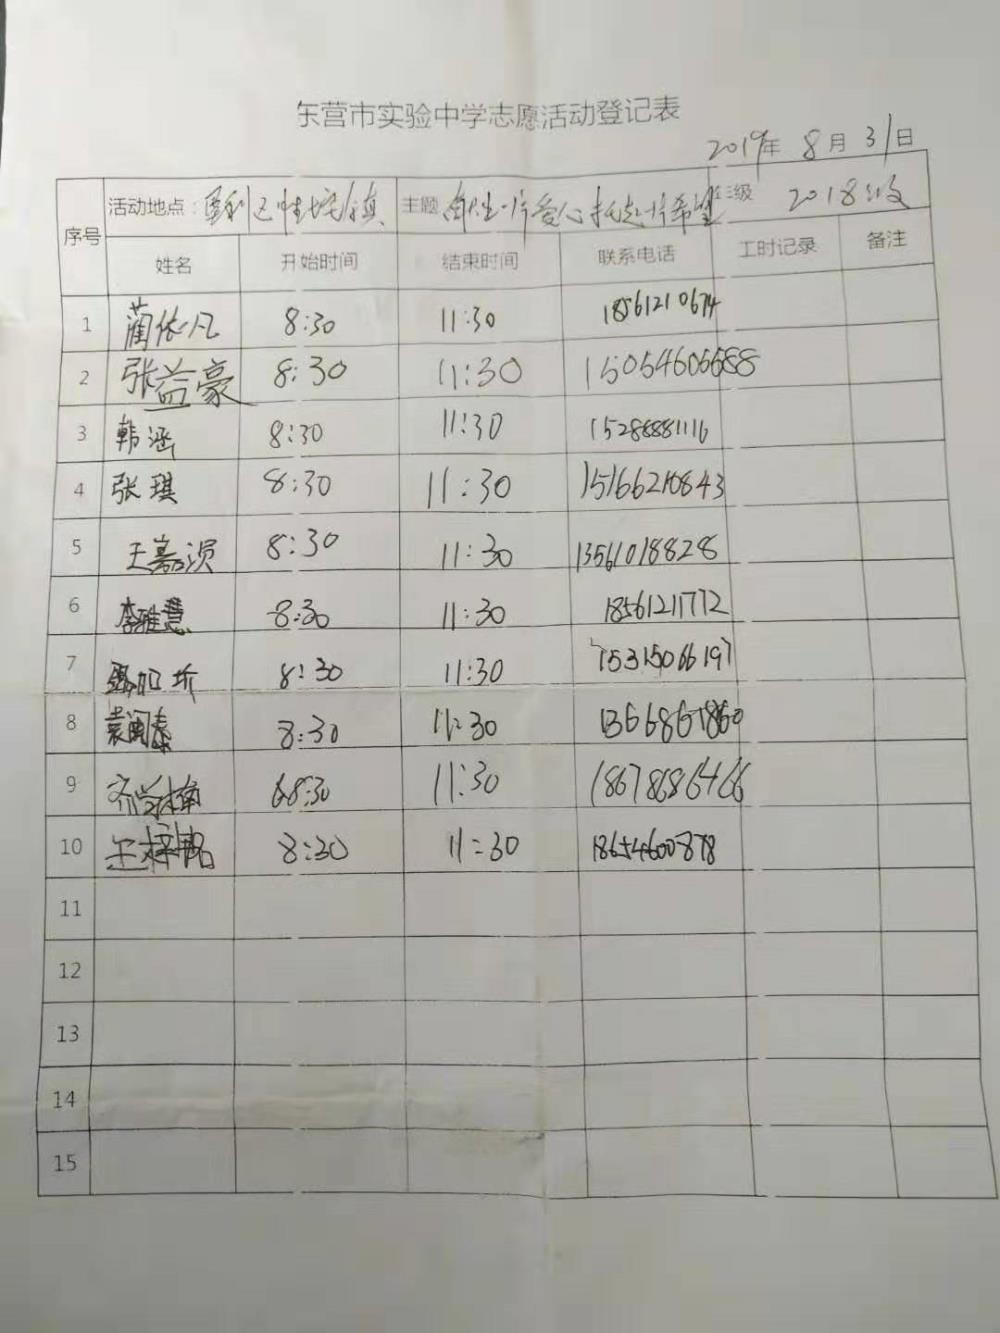 东营市实验中学志愿活动登记表
2019年 8月 31日
序号 活动地点：垦利区胜坨镇 主题 献出一片爱心托起一片希望 年级 2018级
姓名 开始时间 结束时间 联系电话 工时记录 备注
1 蔺依凡 8:30 11:30 18561210674
2 张益豪 8:30 11:30 15054606688
3 韩涵 8:30 11:30 15288881116
4 张琪 8:30 11:30 15166210843
5 王嘉 8:30 11:30 13561018828
6 李雅慧 8:30 11:30 18561211772
7 8:30 11:30 15315066197
8 袁闽泰 8:30 11:30
9 齐学楠 8:30 11:30 18678686466
10 王梓铭 8:30 11:30 18654600878
11
12
13
14
15